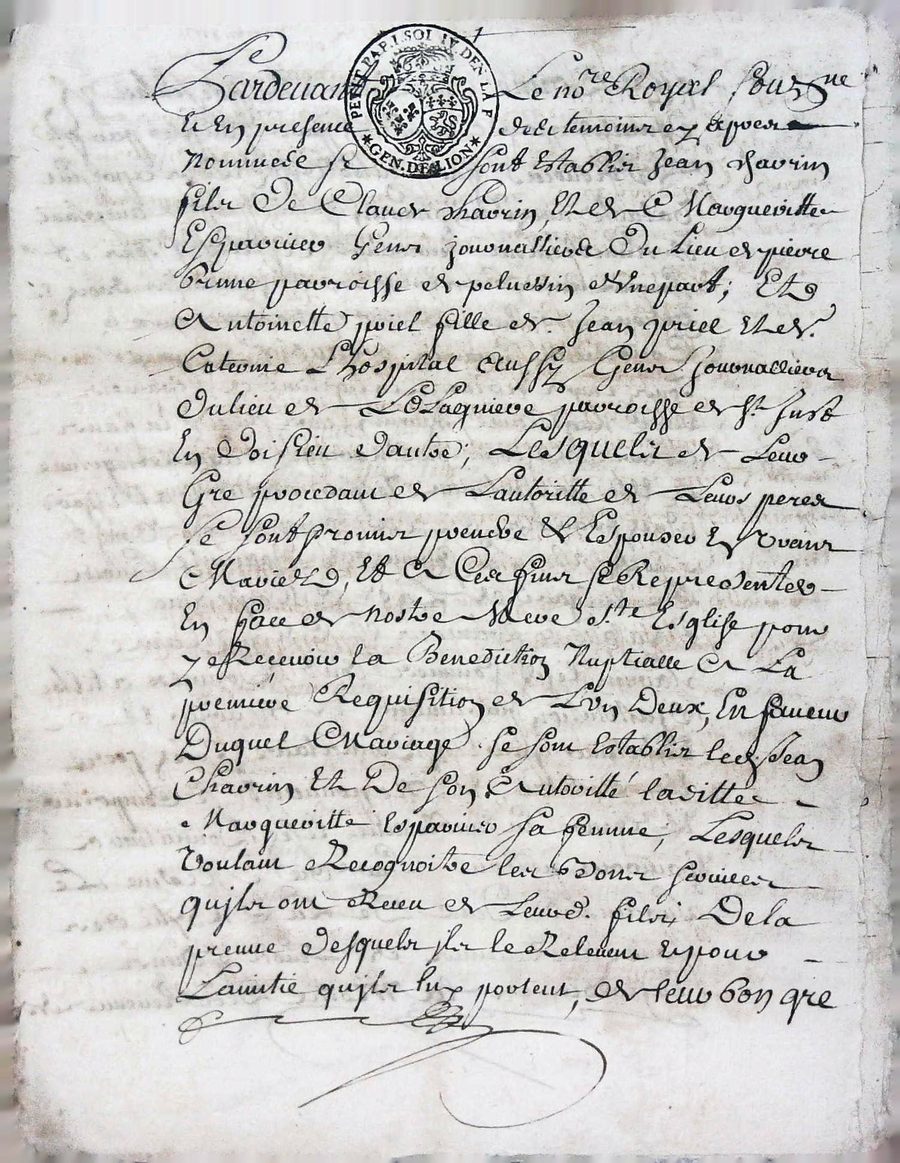 PETIT PAP. 1 SOL IV DEN. LA F
GEN. DE LION
Pardevant Le no.re Royal sous.ne
Et En presence des temoins cy apres
Nommés se sont Establis Jean Chavrin
fils De Claude Chavrin Et de Margueritte
Esparvier Gens journalliers Du Lieu de pierre
brune parroisse de pelussin d'unepart; Et
Antoinette priel fille de Jean priel Et de
Caterine L'hospital Aussy Gens journalliers
Du lieu de parroisse de st Just
En Doisieu Dautre; Lesquels de Leur
Gre procedant de L'autoritte de Leurs peres
se sont promis prendre & Espouser En vrais
Mariés, Et A Ces fins se Representer
En face de nostre Mere ste Esglise pour
y Recevoir la Benediction Nuptialle A La
premiere Requisition de L'un Deux, En faveur
Duquel Mariage se sont Establis led. Jean
Chavrin Et De son Autoritté laditte
Margueritte Esparvier sa femme, Lesquels
Voulant Recognoitre les bons services
quils ont Receu de Leurd. fils; De la
preuve Desquels ils le Relevent Et pour
L'amitié quils luy portent, de leur bon gré